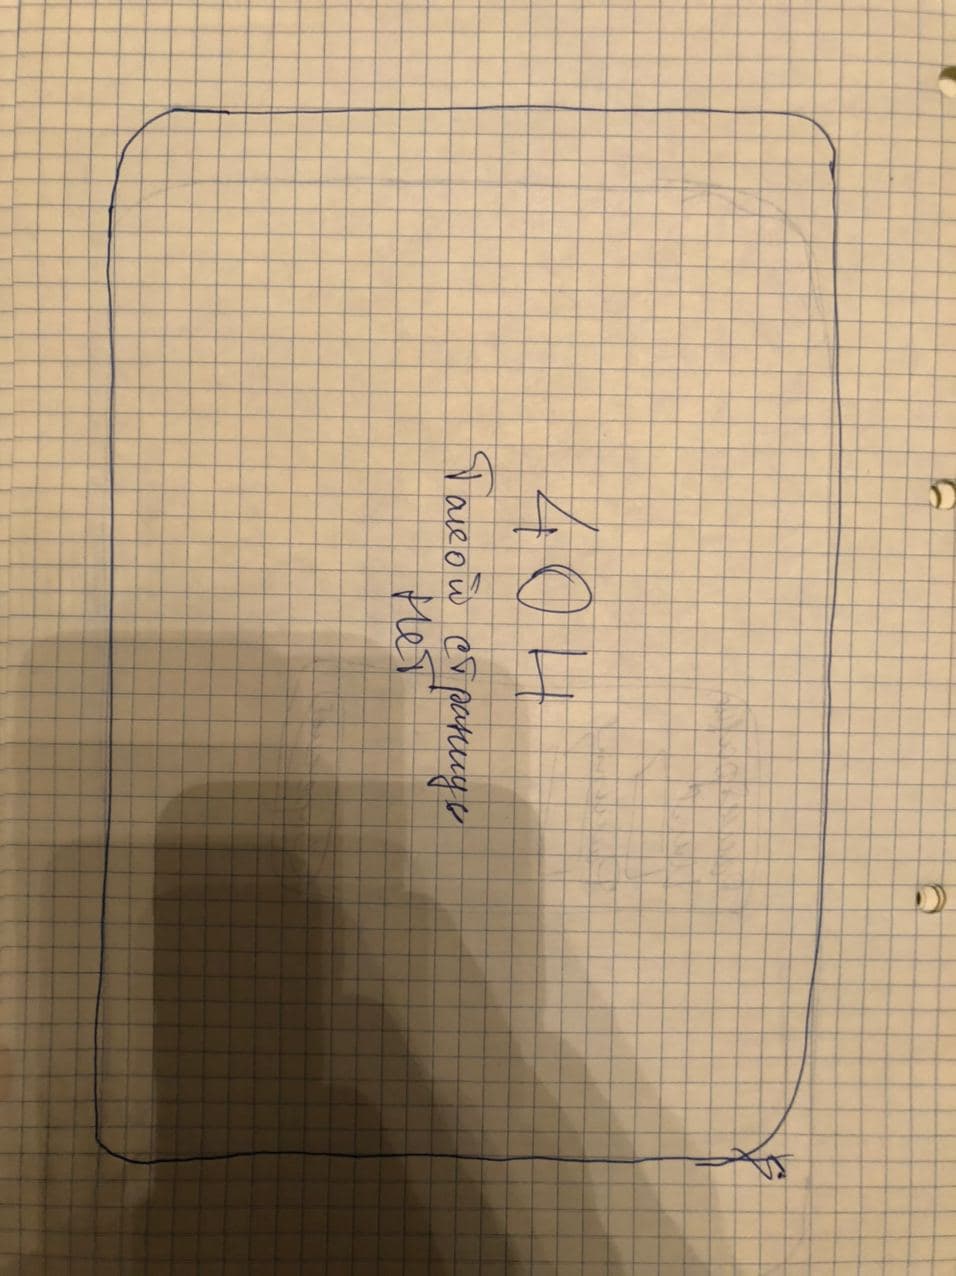 404
Такой страницы
нет